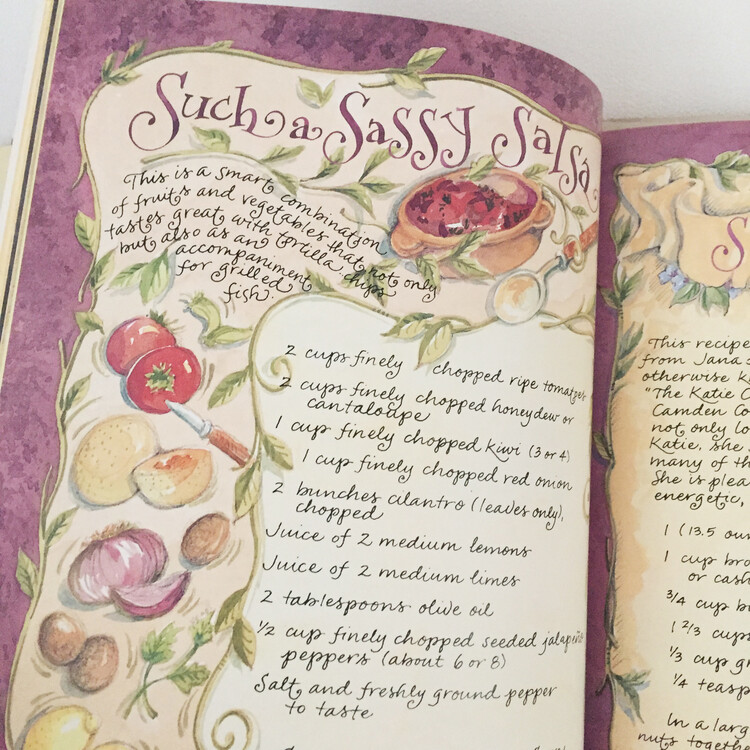 Such a Sassy Salsa
This is a smart combination
of fruits and vegetables that not only
tastes great with tortilla chips
but also as an
accompaniment
for grilled
fish.
2 cups finely chopped ripe tomatoes
2 cups finely chopped honeydew or
cantaloupe
1 cup finely chopped kiwi (3 or 4)
1 cup finely chopped red onion
2 bunches cilantro (leaves only),
chopped
Juice of 2 medium lemons
Juice of 2 medium limes
2 tablespoons olive oil
1/2 cup finely chopped seeded jalapeño
peppers (about 6 or 8)
Salt and freshly ground pepper
to taste
S
This recipe
from Jana
otherwise k
"The Katie C
Camden Co
not only lo
Katie, she
many of th
She is plea
energetic,
1 (13.5 oun
1 cup bro
or cash
3/4 cup b
1 2/3 cups
1/3 cup gr
1/4 teasp
In a larg
nuts togeth